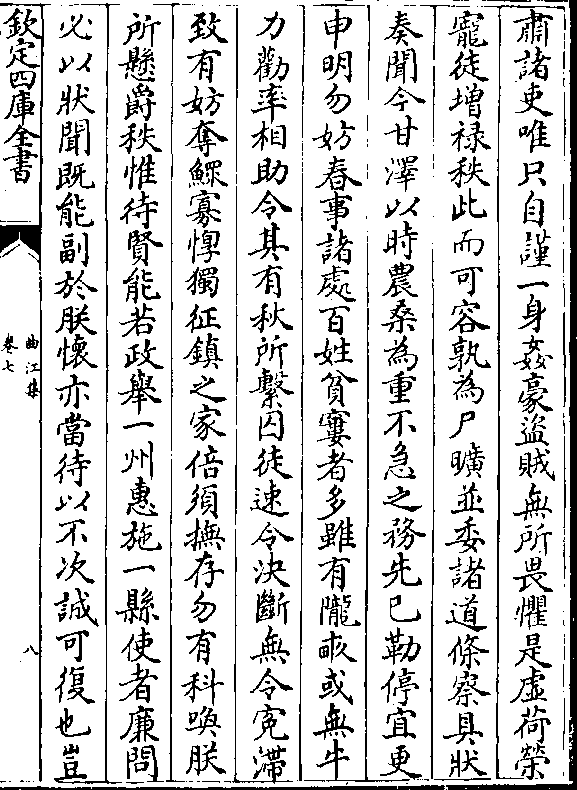 肅諸吏唯只自謹一身姦豪盜賊無所畏懼是虛荷榮
寵徒增禄秩此而可容孰為尸曠並委諸道條察具狀
奏聞今甘澤以時農桑為重不急之務先已勒停宜更
申明勿妨春事諸處百姓貧窶者多雖有隴畝或無牛
力勸率相助令其有秋所繫囚徒速令決斷無令寃滯
致有妨奪鰥寡惸獨征鎮之家倍須撫存勿有科喚朕
所懸爵秩惟待賢能若政舉一州惠施一縣使者廉問
必以狀聞既能副於朕懷亦當待以不次誠可復也豈
欽定四庫全書
曲江集
卷七
八